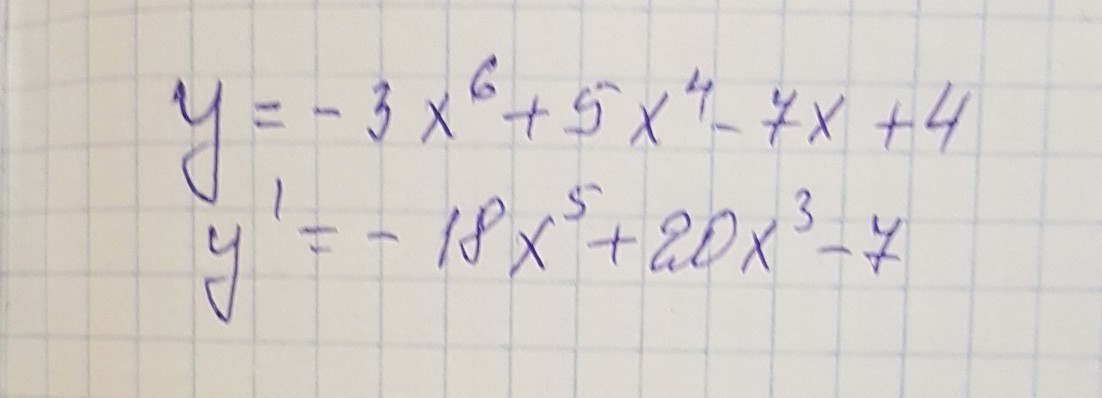 y = - 3x⁶ + 5x⁴ - 7x + 4
y' = - 18x⁵ + 20x³ - 7